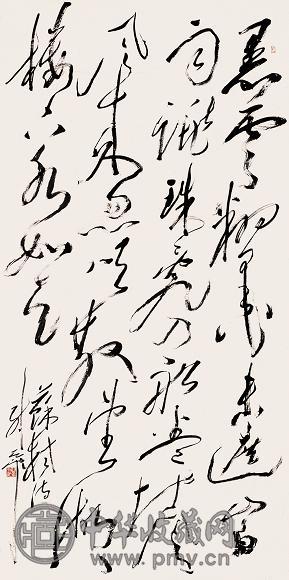 黑雲翻墨未遮山
白雨跳珠亂入船卷地
風來忽吹散望湖
樓下水如天
蘇軾詩
中华收藏网
www.pmy.cn